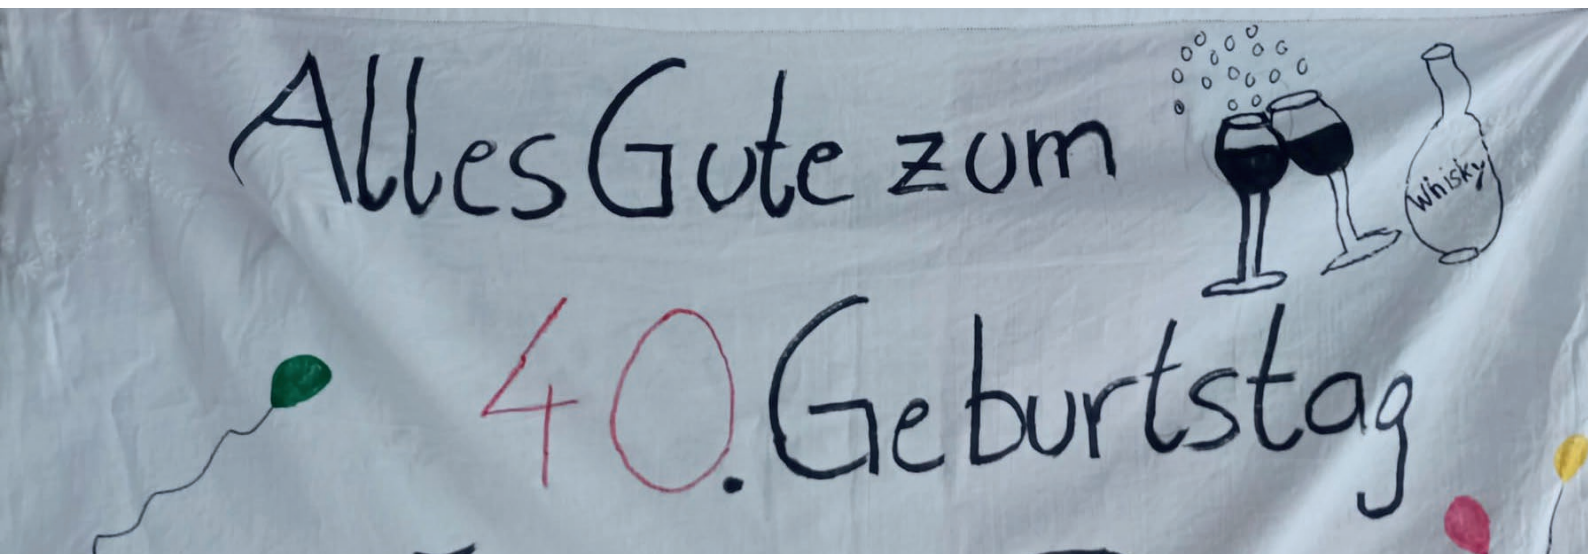 Alles Gute zum
Whisky
40. Geburtstag